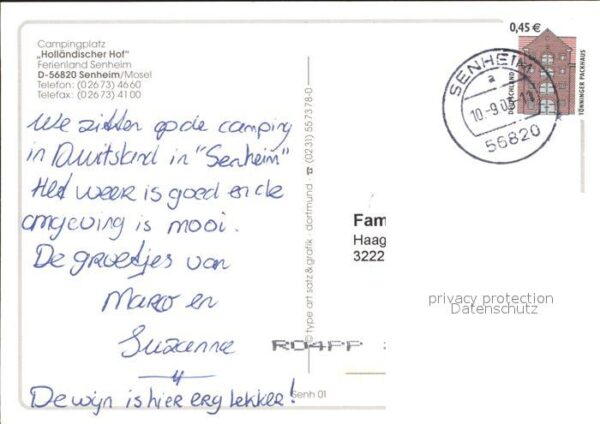 Campingplatz
„Holländischer Hof"
Ferienland Senheim
D-56820 Senheim/Mosel
Telefon: (02673) 4660
Telefax: (02673) 4100
We zitten op de camping
in Duitsland in "Senheim"
Het weer is goed en de
omgeving is mooi.
De groetjes van
Marco en
Suzanne
De wijn is hier erg lekker!
Senh 01
© type art satz & grafik · dortmund ☎ (0231) 557378-0
0,45 €
DEUTSCHLAND
TÖNNINGER PACKHAUS
SENHEIM
a
56820
Fam
Haag
3222
privacy protection
Datenschutz
R04PP